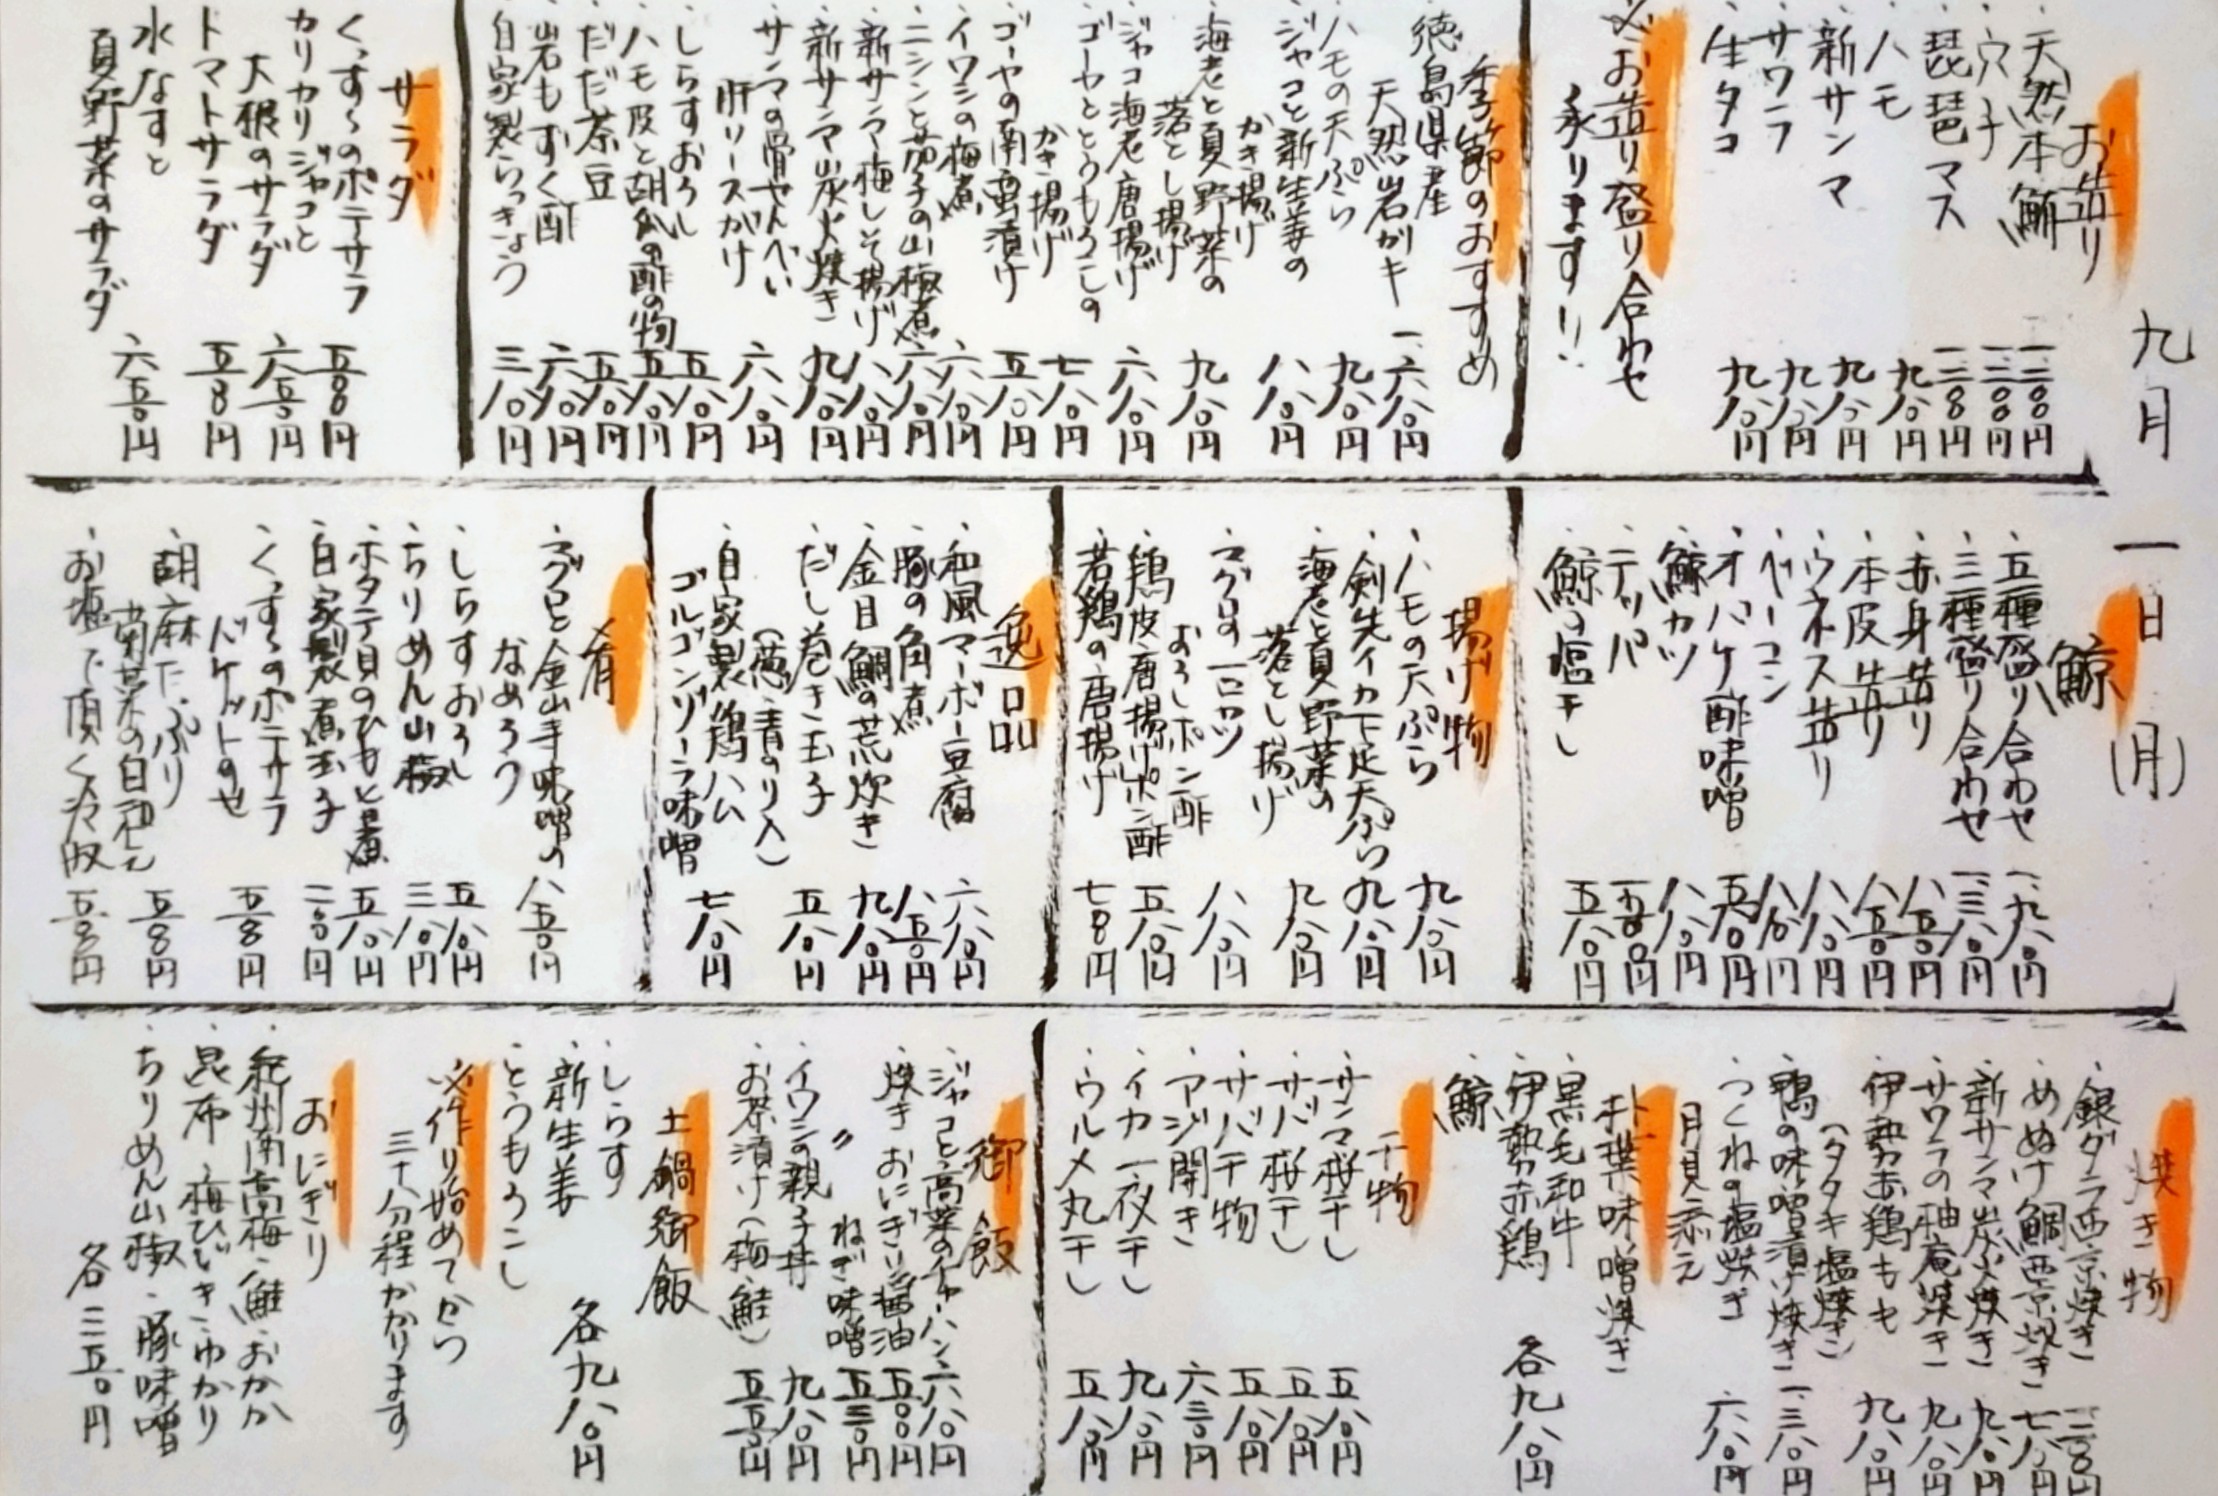 九月一日(月)
お造り
・天然本鮪 一二〇〇円
・穴子 一二〇〇円
・琵琶マス 一二〇〇円
・ハモ 九八〇円
・新サンマ 九八〇円
・サワラ 九八〇円
・生タコ 九八〇円
※お造り盛り合わせ
承ります!!
季節のおすすめ
・徳島県産
天然岩ガキ 一、六八〇円
・ハモの天ぷら 九八〇円
・ジャコと新生姜の
かき揚げ 八八〇円
・海老と夏野菜の
落とし揚げ 九八〇円
・ジャコ海老唐揚げ 六八〇円
・ゴーヤととうもろこしの
かき揚げ 七八〇円
・ゴーヤの南蛮漬け 五八〇円
・イワシの梅煮 六八〇円
・ニシンと茄子の山椒煮 六八〇円
・新サンマ梅しそ揚げ 八八〇円
・新サンマ炭火焼き 九八〇円
・サンマの骨せんべい
肝ソースがけ 六八〇円
・しらすおろし 五八〇円
・ハモ皮と胡瓜の酢の物 五八〇円
・だだ茶豆 五八〇円
・岩もずく酢 六八〇円
・自家製らっきょう 三八〇円
サラダ
・くっすぅのポテサラ 五〇〇円
・カリカリジャコと
大根のサラダ 六五〇円
・トマトサラダ 五〇〇円
・水なすと
夏野菜のサラダ 六五〇円
鯨
・五種盛り合わせ 一、九八〇円
・三種盛り合わせ 一、三八〇円
・赤身造り 八五〇円
・本皮造り 八五〇円
・ウネス造り 八八〇円
・ベーコン 八八〇円
・オバケ酢味噌
・鯨カツ 八八〇円
・テッパ
・鯨の塩干し 五八〇円
揚げ物
・ハモの天ぷら 九八〇円
・剣先イカ下足天ぷら 九八〇円
・海老と夏野菜の
落とし揚げ 九八〇円
・マグロの一口カツ
おろしポン酢 八八〇円
・鶏皮唐揚げポン酢 五八〇円
・若鶏の唐揚げ 七〇〇円
逸品
・和風マーボー豆腐 六八〇円
・豚の角煮 八五〇円
・金目鯛の荒炊き 九八〇円
・だし巻き玉子
(葱・青のり入) 五八〇円
・自家製鶏ハム
ゴルゴンゾーラ味噌 七八〇円
肴
・マグロと金山寺味噌の
なめろう 八五〇円
・しらすおろし 五八〇円
・ちりめん山椒 三八〇円
・ホタテ貝のひもと煮 五八〇円
・自家製煮玉子 二〇〇円
・くっすぅのポテサラ
バケットのせ 五〇〇円
・胡麻たっぷり
菊菜の白和え 五〇〇円
・お塩で頂く冷奴 五〇〇円
焼き物
・銀ダラ西京焼き
・めぬけ鯛西京焼き
・新サンマ炭火焼き 九八〇円
・サワラの柚庵焼き 九八〇円
・伊勢赤鶏もも
(タタキ・塩焼き) 九八〇円
・鴨の味噌漬け焼き 一、三八〇円
・つくねの塩焼き
月見添え 六八〇円
朴葉味噌焼き
・黒毛和牛
・伊勢赤鶏
・鯨 各九八〇円
干物
・サンマ桜干し 五八〇円
・サバ桜干し 五八〇円
・サバ干物 五八〇円
・アジ開き 六三〇円
・イカ一夜干し 九八〇円
・ウルメ丸干し 五八〇円
御飯
・ジャコと高菜のチャーハン 六八〇円
・焼きおにぎり醤油 五〇〇円
〃 ねぎ味噌 五五〇円
・イワシの親子丼 九八〇円
・お茶漬け(梅・鮭) 五五〇円
土鍋御飯
・しらす
・新生姜
・とうもろこし 各九八〇円
※作り始めてから
三十分程かかります
おにぎり
・紀州南高梅・鮭・おかか
・昆布・梅ひじき・ゆかり
・ちりめん山椒・豚味噌
各二五〇円